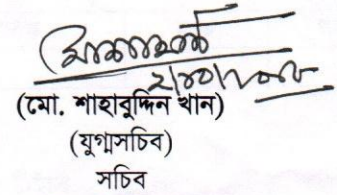 (মো. শাহাবুদ্দিন খান)
(যুগ্মসচিব)
সচিব